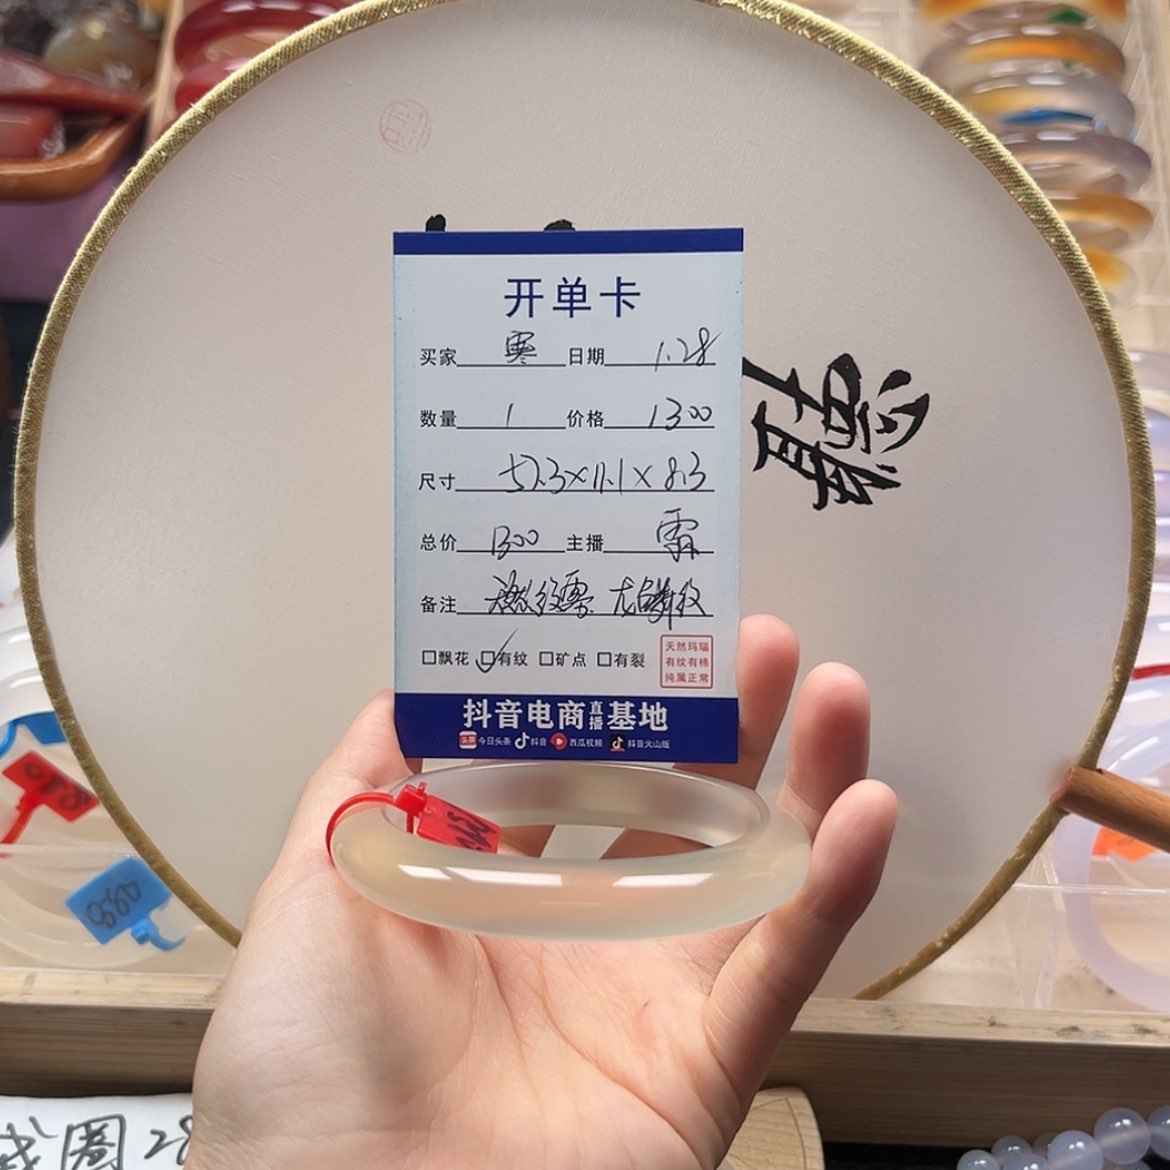 开单卡
买家 寒 日期 1.28
数量 1 价格 1300
尺寸 57.3×11.1×8.3
总价 1300 主播 霏
备注 纹 龙鳞纹
□飘花 ☑有纹 □矿点 □有裂
天然玛瑙
有纹有棉
纯属正常
抖音电商直播基地
头条 今日头条 抖音 西瓜视频 抖音火山版
聽
880
圈 28